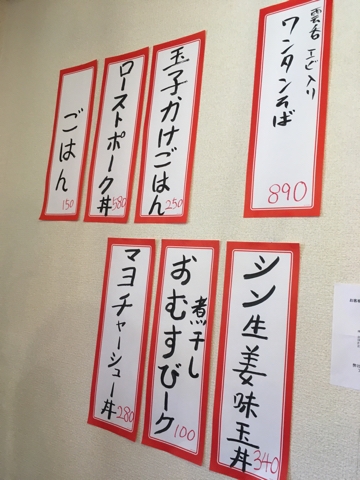 雲呑 エビ入り
ワンタンそば
890
玉子かけごはん
250
ローストポーク丼
580
ごはん
150
シン生姜味玉丼
340
煮干し
おむすびーク
100
マヨチャーシュー丼
280